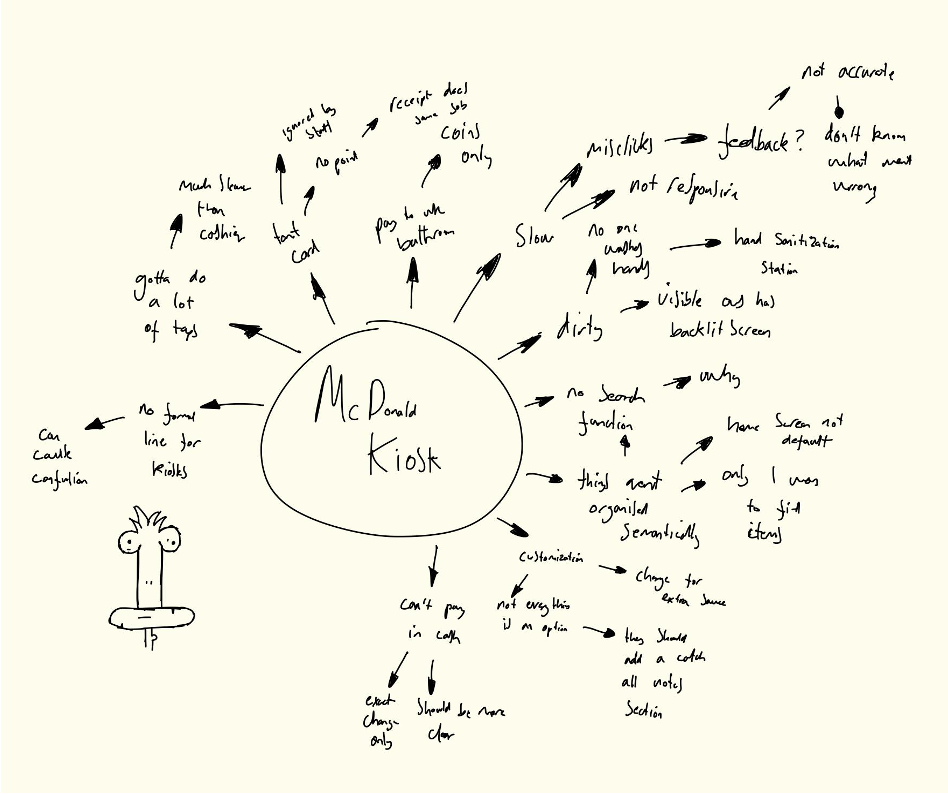 McDonald
Kiosk
gotta do
a lot
of taps
Much slower
than
cashier
card
ignored by
staff
no point
receipt does
same job
pay to use
bathroom
coins
only
Slow
misclicks
feedback?
not accurate
don't know
what went
wrong
not responsive
dirty
no one
washes
hands
hand Sanitization
Station
visible as has
backlit screen
no search
function
why
things arent
organised
semantically
home Screen not
default
only 1 way
to find
items
customization
charge for
extra sauce
not everything
is an option
they should
add a catch
all notes
Section
can't pay
in cash
exact
change
only
Should be more
clear
no formal
line for
kiosks
can
cause
confusion